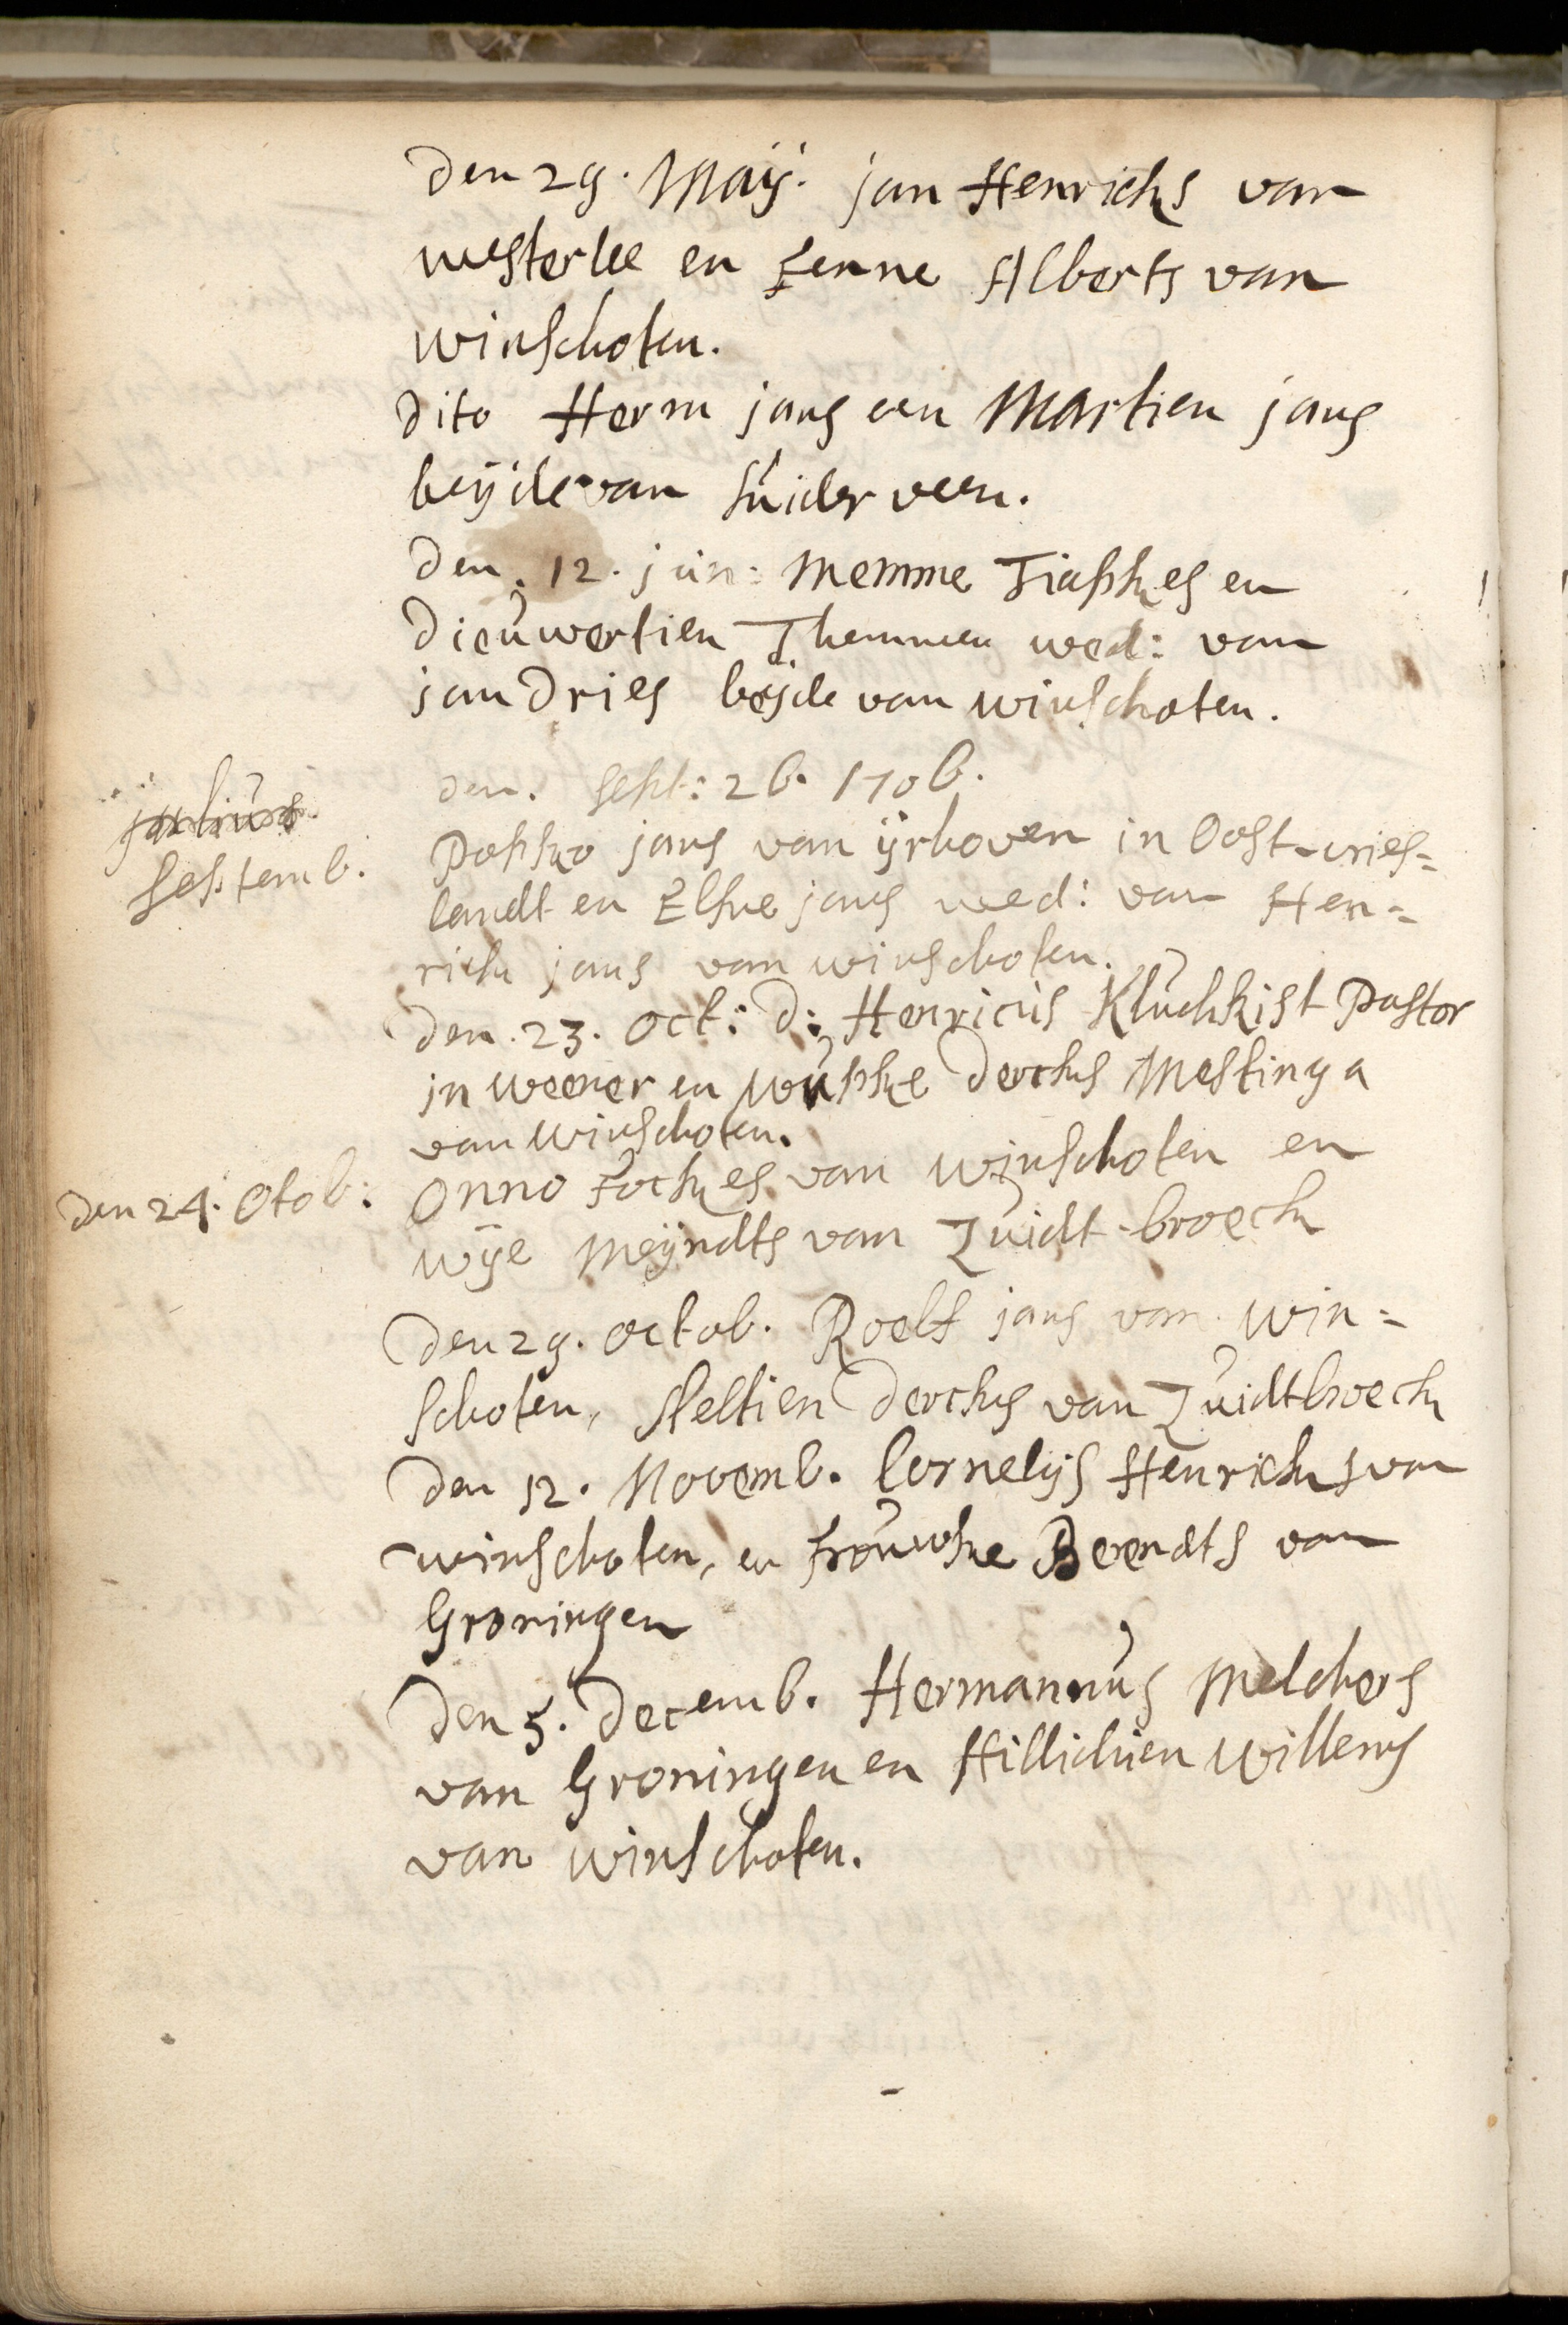 den 29. Maij. jan Henrichs van
westerlee en Fenne Alberts van
winschoten.
dito Herm jans en Martien jans
beijde van suiderveen.
den. 12. jun: Memme Tiapkes en
dieuwertien Themmen wed: van
jan dries beijde van winschoten.
den. sept: 26. 1706.
julius
septemb.
Popko jans van ijrhoven in Oost-vries=
landt en Elske jans wed: van Hen=
rich jans van winschoten.
den. 23. oct: d: Henricus Kluchkist Pastor
in weener en Wupke derchs Mestinga
van winschoten.
den 24. Otob:
Onno Fockes van winschoten en
wije Meijndts van Zuidt-broeck
den 29. octob. Roelf jans van win=
schoten, Aeltien derchs van Zuidtbroeck
den 12. Novemb. Cornelijs Henrichs van
winschoten, en Frouwke Beerendts van
Groningen
den 5. decemb. Hermannus Melchers
van Groningen en Hillichien willems
van winschoten.